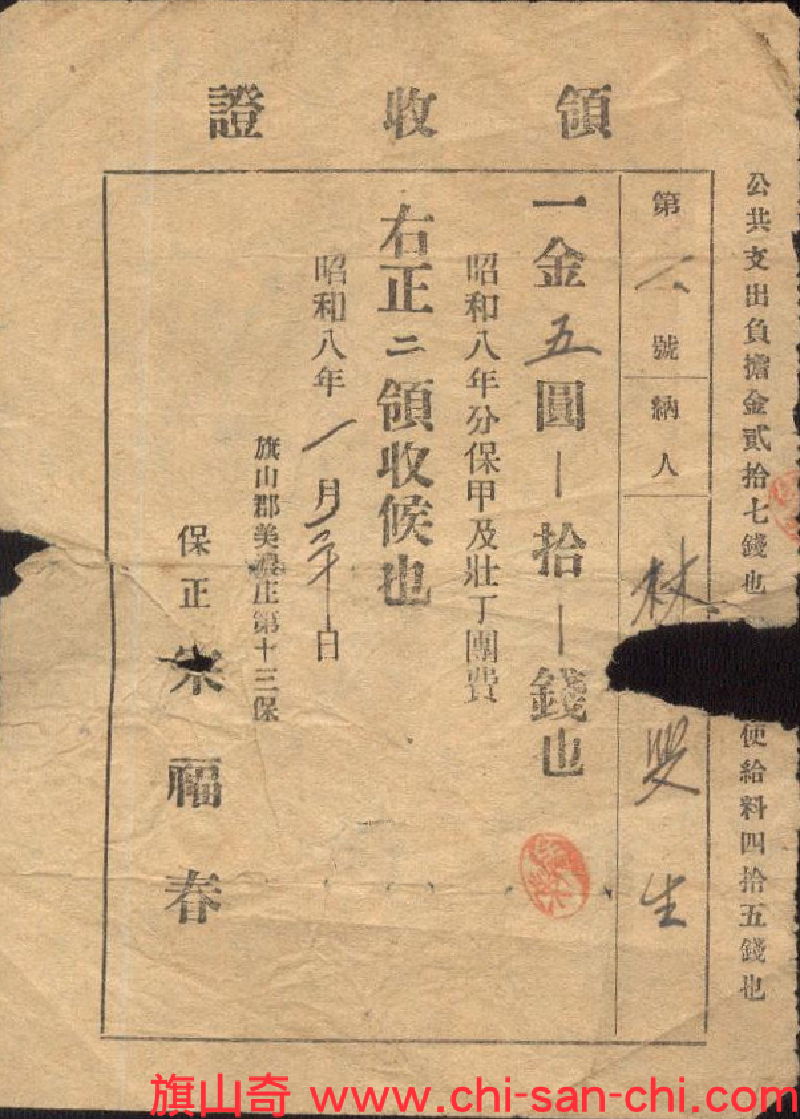 領收證
公共支出負擔金貳拾七錢也 使給料四拾五錢也
第 八 號 納人 林 生
一金五圓 拾 錢也
昭和八年分保甲及壯丁團費
右正ニ領收候也
昭和八年 月 日
旗山郡美濃庄第十三保
保正 宋福春
旗山奇 www.chi-san-chi.com